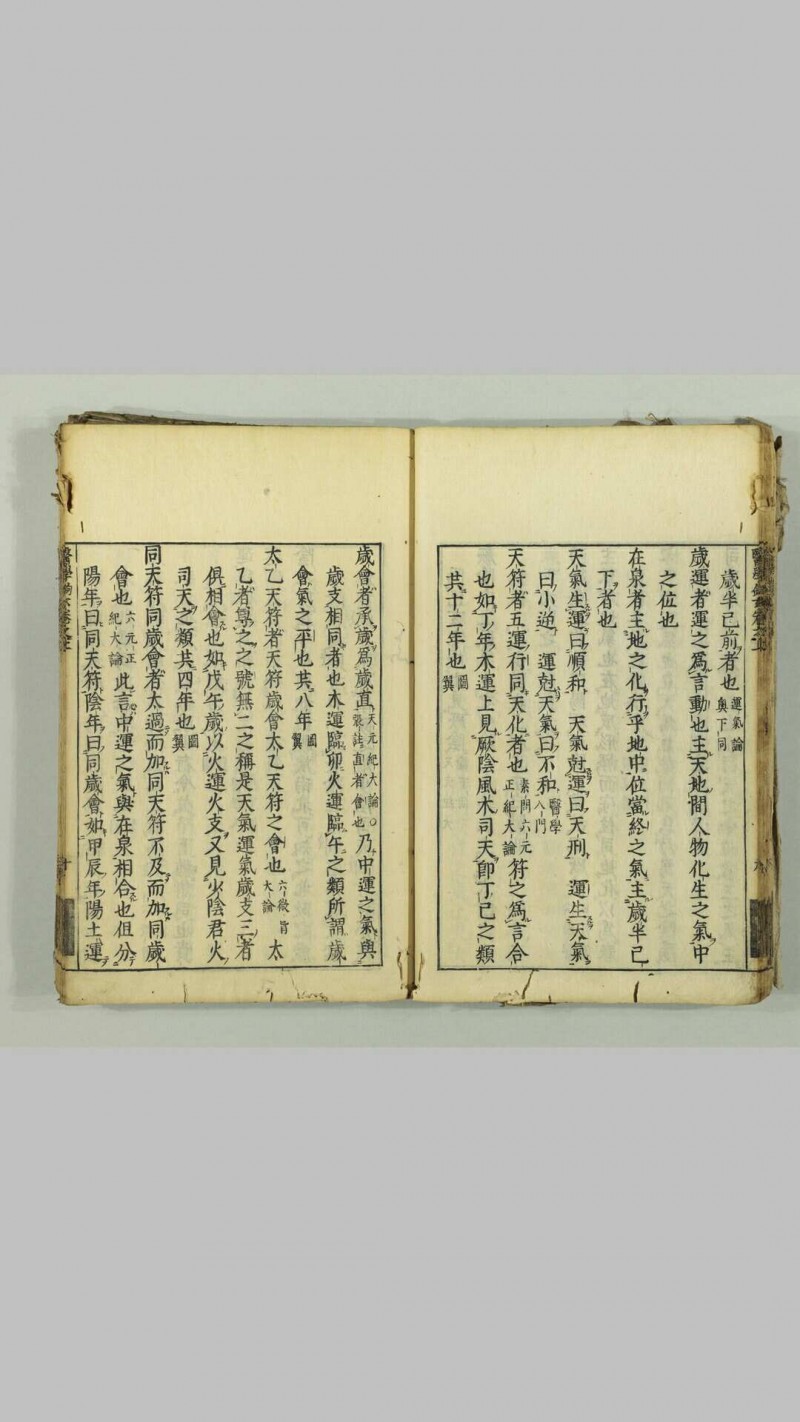 歲半已前者也運氣論奧下同
歲運者運之爲言動也主天地間人物化生之氣中
之位也
在泉者主地之化行乎地中位當終之氣主歲半已
下者也
天氣生運曰順和 天氣尅運曰天刑 運生天氣
曰小逆 運尅天氣曰不和醫學入門
天符者五運行同天化者也素問六元正紀大論符之爲言合
也如丁年木運上見厥陰風木司天即丁已之類
共十二年也圖翼
歲會者承歲爲歲直天元紀大論○張註直者會也乃中運之氣與
歲支相同者也木運臨卯火運臨午之類所謂歲
會氣之平也共八年圖翼
太乙天符者天符歲會太乙天符之會也六微旨大論太
乙者尊之之號無二之稱是天氣運氣歲支三者
俱相會也如戊午歲以火運火支又見少陰君火
司天之類共四年也圖翼
同天符同歲會者太過而加同天符不及而加同歲
會也六元正紀大論此言中運之氣與在泉相合也但分
陽年曰同天符陰年曰同歲會如甲辰年陽土運